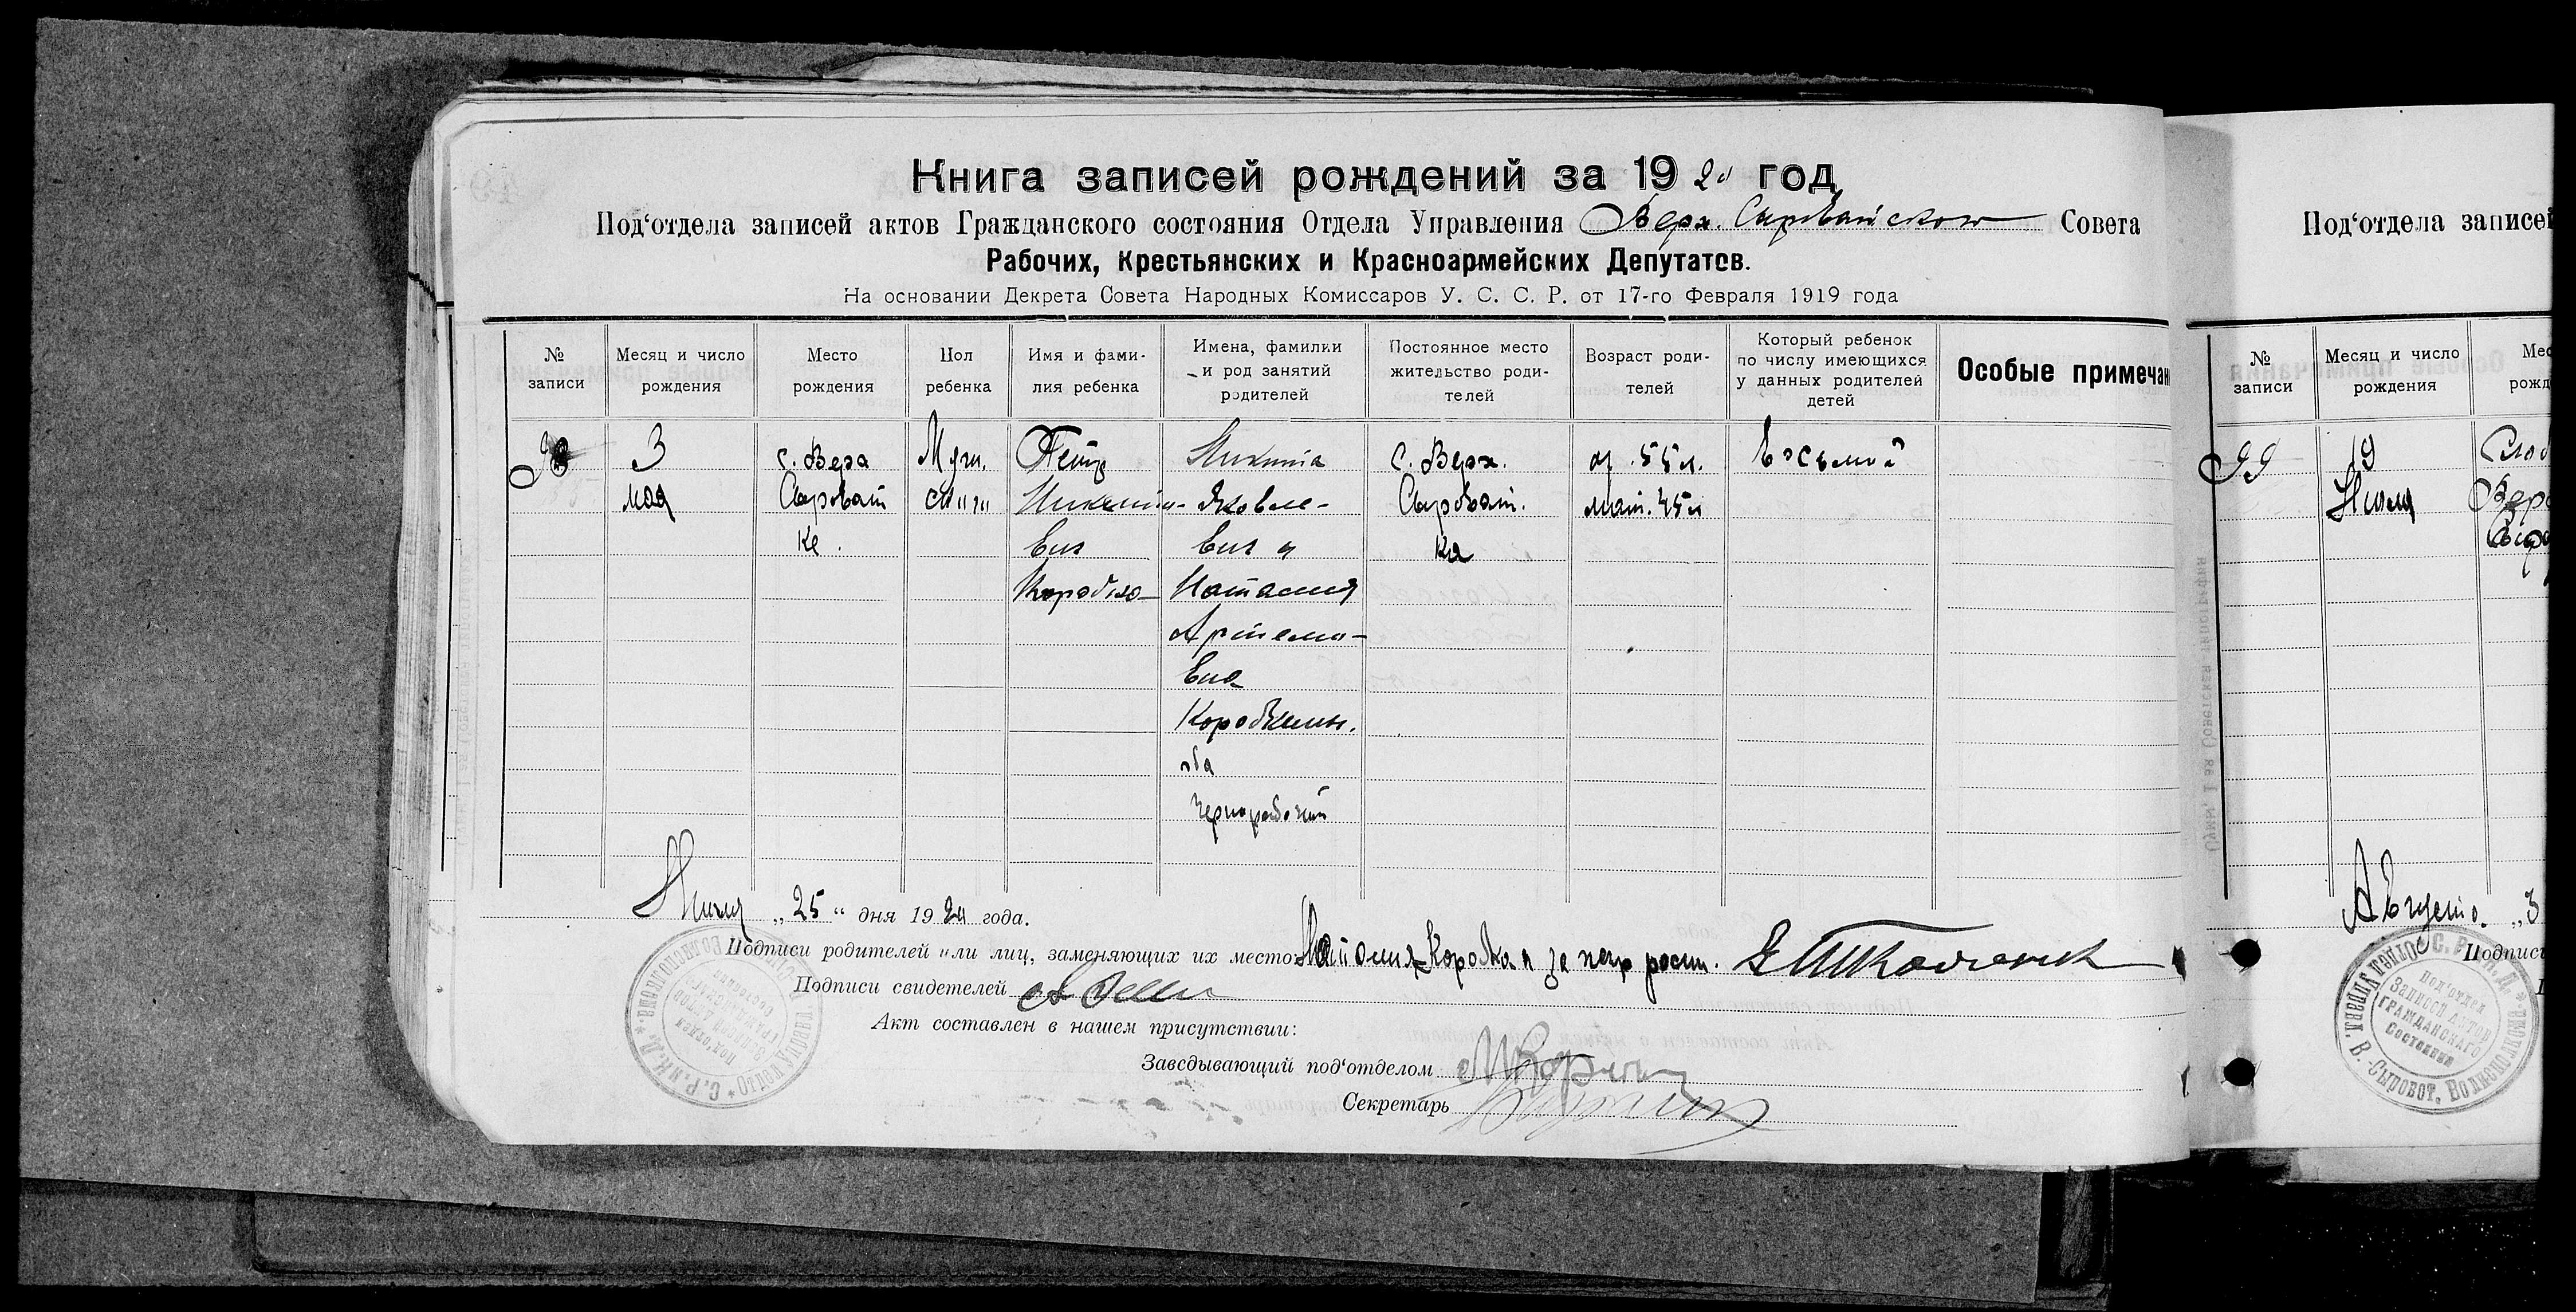 Книга записей рождений за 1920 год
Под‘отдела записей актов Гражданского состояния Отдела Управления Верх. Сыроватского Совета
Рабочих, Крестьянских и Красноармейских Депутатов.
На основании Декрета Совета Народных Комиссаров У. С. С. Р. от 17-го Февраля 1919 года
№ записи
Месяц и число рождения
Место рождения
Пол ребенка
Имя и фами-
лия ребенка
Имена, фамилии
и род занятий
родителей
Постоянное место
жительство роди-
телей
Возраст роди-
телей
Который ребенок
по числу имеющихся
у данных родителей
детей
Особые примечан
98
3
мая
с. Верх
Сыроват
ке.
Муж.
ской
Петр
Никити-
вич
Коробка
Никита
Яковле-
вич и
Наталия
Артемо-
вна
Коробкины.
оба
Чернорабочий
с. Верх.
Сыроват.
ка
от. 55 л.
мат. 45 л
Восьмой
Июля „25“ дня 1920 года.
Подписи родителей или лиц, заменяющих их место Наталия Коробка и за негр росп.
Подписи свидетелей
Акт составлен в нашем присутствии:
Заведывающий под‘отделом
Секретарь
Под‘отдела записей
№ записи
Месяц и число рождения
Мес
рожд
99
19
Июля
Слоб
Верх
Сыро
Августа „3
Подписи
Под‘отдел
Записи Актов
Гражданского
Состояния